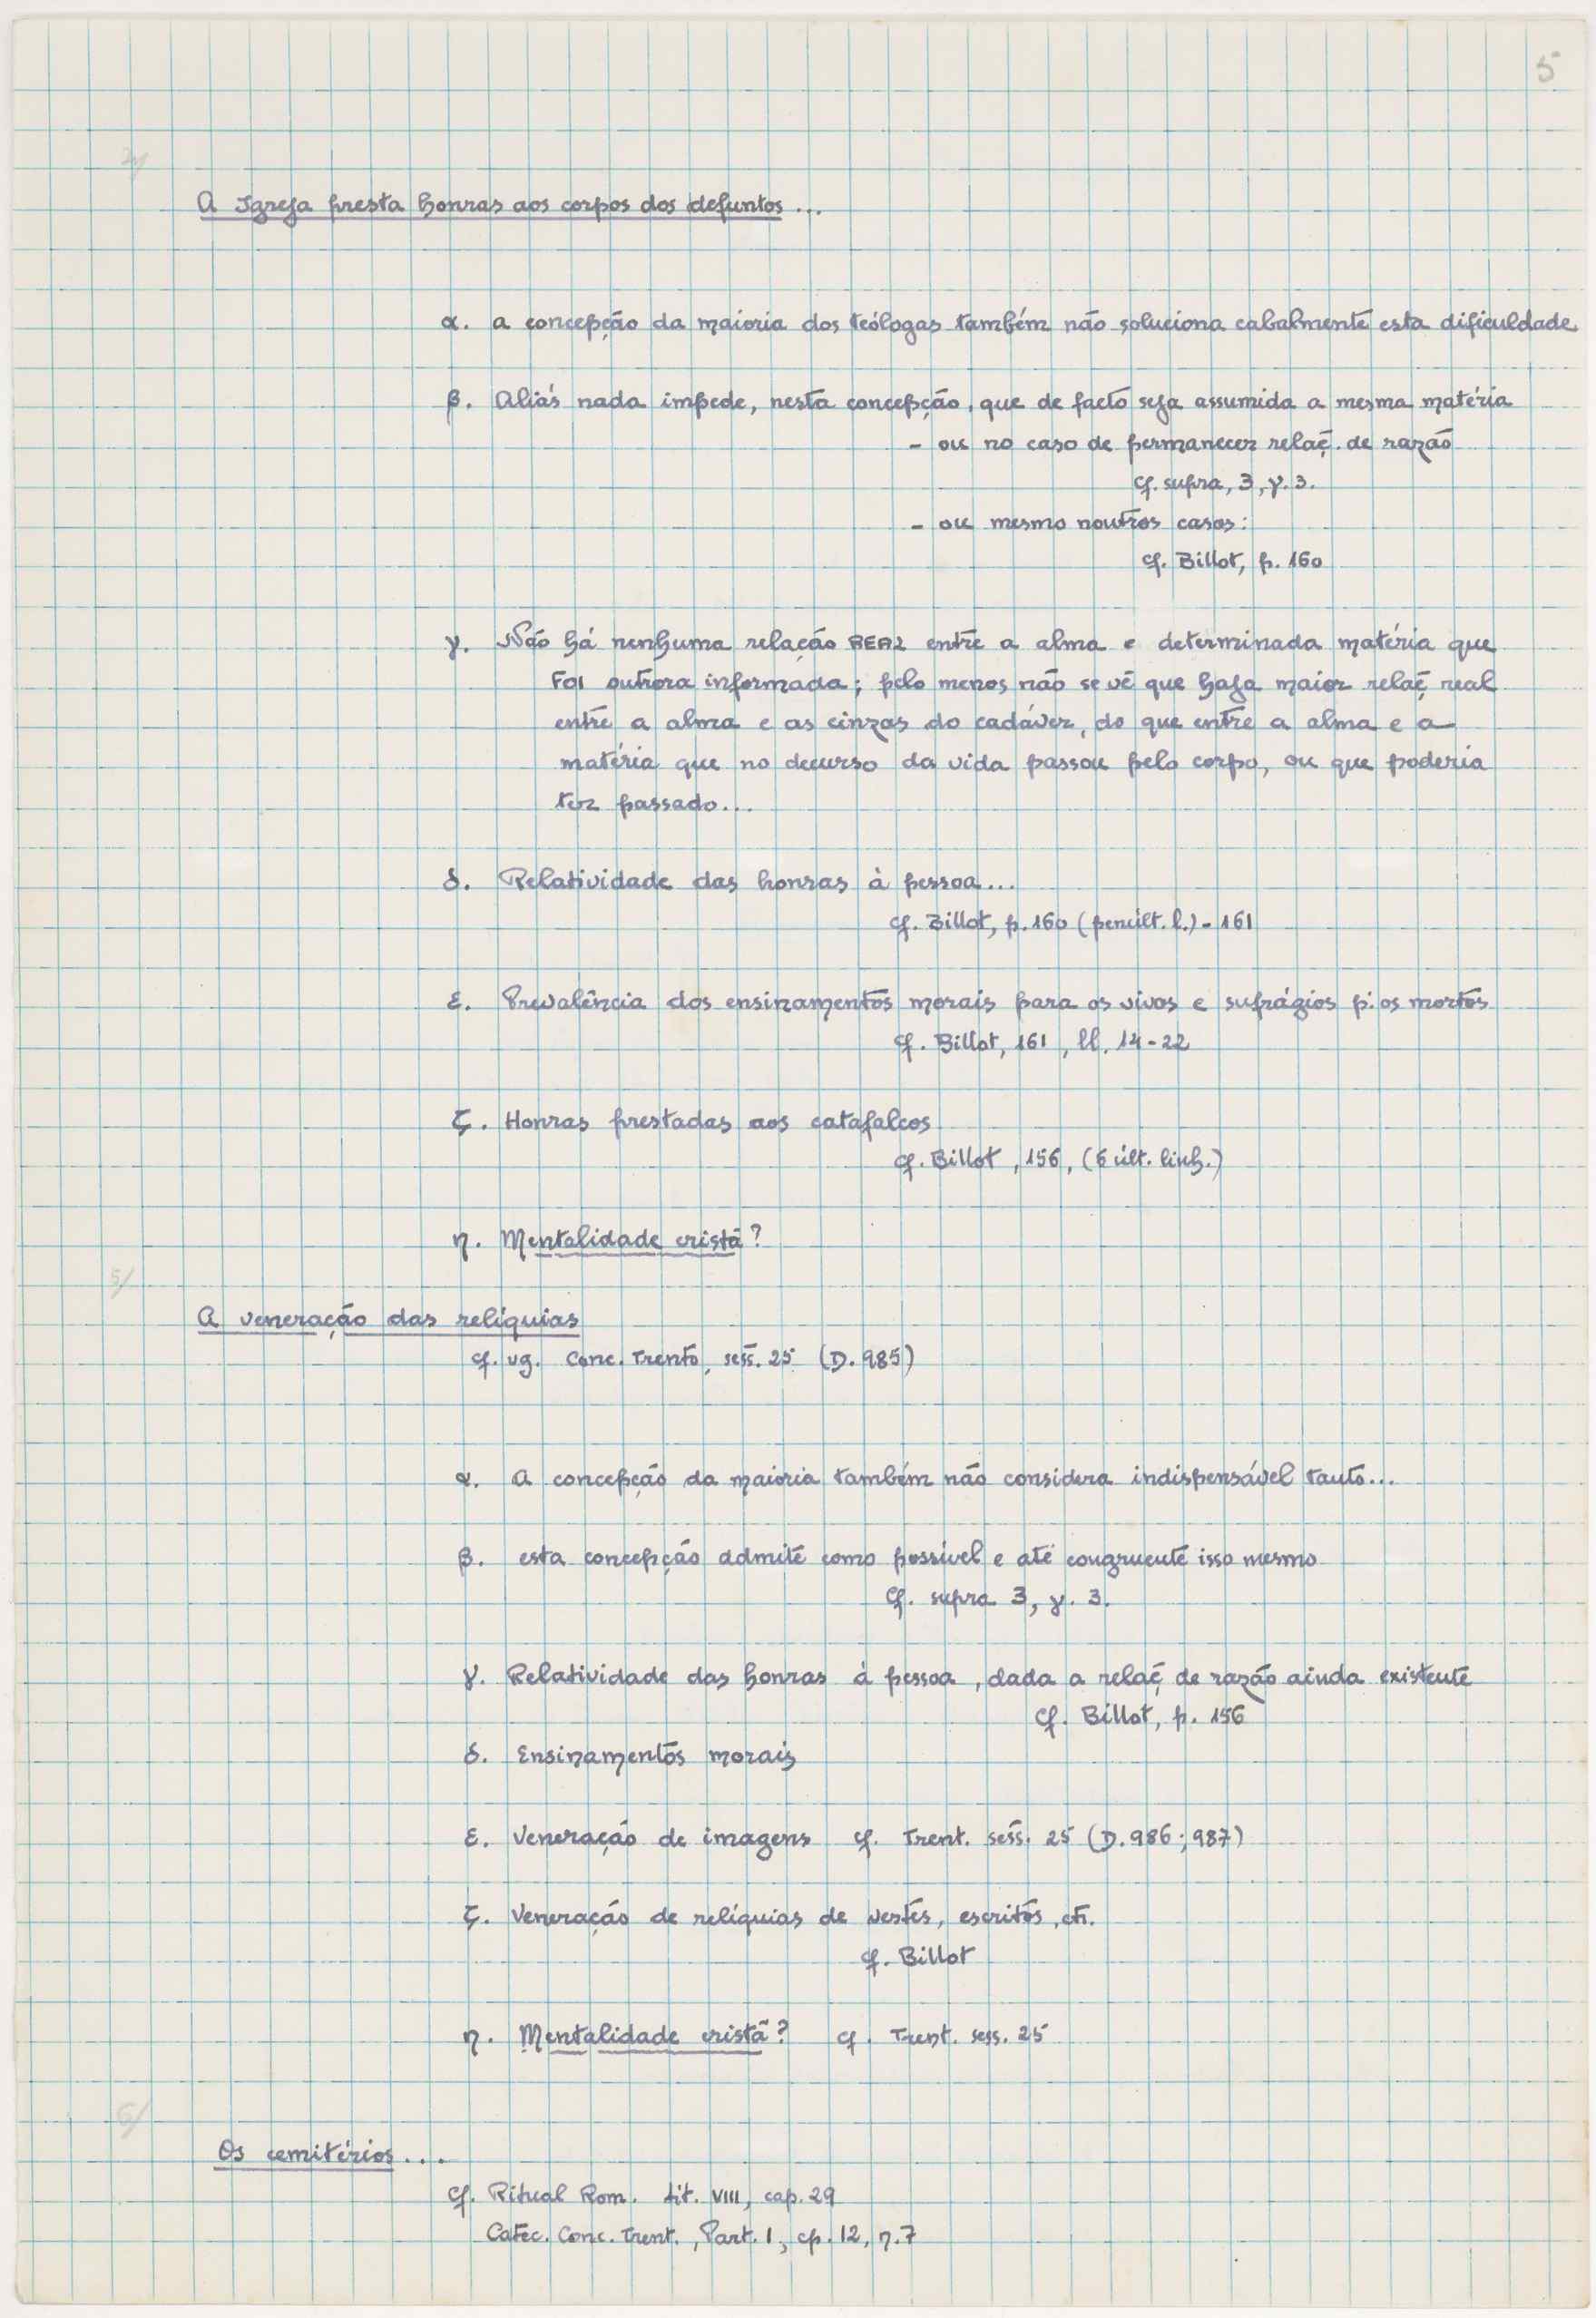 5
A Igreja presta honras aos corpos dos defuntos...
α. a concepção da maioria dos teólogos também não soluciona cabalmente esta dificuldade
β. Aliás nada impede, nesta concepção, que de facto seja assumida a mesma matéria
- ou no caso de permanecer relaç. de razão
cf. supra, 3, γ. 3.
- ou mesmo noutros casos:
cf. Billot, p. 160
γ. Não há nenhuma relação REAL entre a alma e determinada matéria que
FOI outrora informada; pelo menos não se vê que haja maior relaç real
entre a alma e as cinzas do cadáver, do que entre a alma e a
matéria que no decurso da vida passou pelo corpo, ou que poderia
ter passado...
δ. Relatividade das honras à pessoa...
cf. Billot, p. 160 (penúlt. l.) - 161
ε. Prevalência dos ensinamentos morais para os vivos e sufrágios p. os mortos
cf. Billot, 161, ll. 14-22
ζ. Honras prestadas aos catafalcos
cf. Billot, 156, (6 últ. linh.)
η. Mentalidade cristã?
5/
A veneração das relíquias
cf. vg. Conc. Trento, sess. 25 (D. 985)
α. A concepção da maioria também não considera indispensável tanto...
β. esta concepção admite como possível e até congruente isso mesmo
Cf. supra 3, γ. 3.
γ. Relatividade das honras à pessoa, dada a relaç de razão ainda existente
Cf. Billot, p. 156
δ. Ensinamentos morais
ε. Veneração de imagens cf. Trent. sess. 25 (D. 986; 987)
ζ. Veneração de relíquias de vestes, escritos, etc.
cf. Billot
η. Mentalidade cristã? cf. Trent. sess. 25
6/
Os cemitérios....
cf. Ritual Rom. tit. VIII, cap. 29
Catec. Conc. Trent., Part. I, cp. 12, n. 7